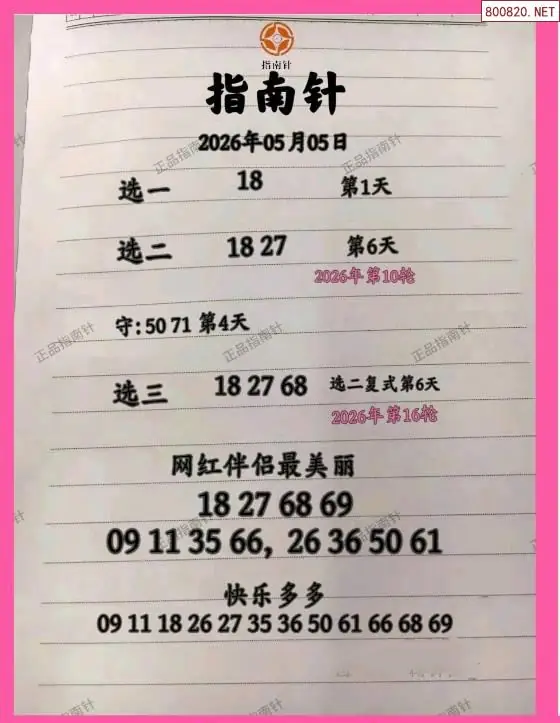 800820.NET
指南针
指南针
2026年05月05日
选一 18 第1天
选二 18 27 第6天
2026年第10轮
守:50 71 第4天
选三 18 27 68 选二复式第6天
2026年第16轮
网红伴侣最美丽
18 27 68 69
09 11 35 66, 26 36 50 61
快乐多多
09 11 18 26 27 35 36 50 61 66 68 69
正品指南针
正品指南针
正品指南针
正品指南针
正品指南针